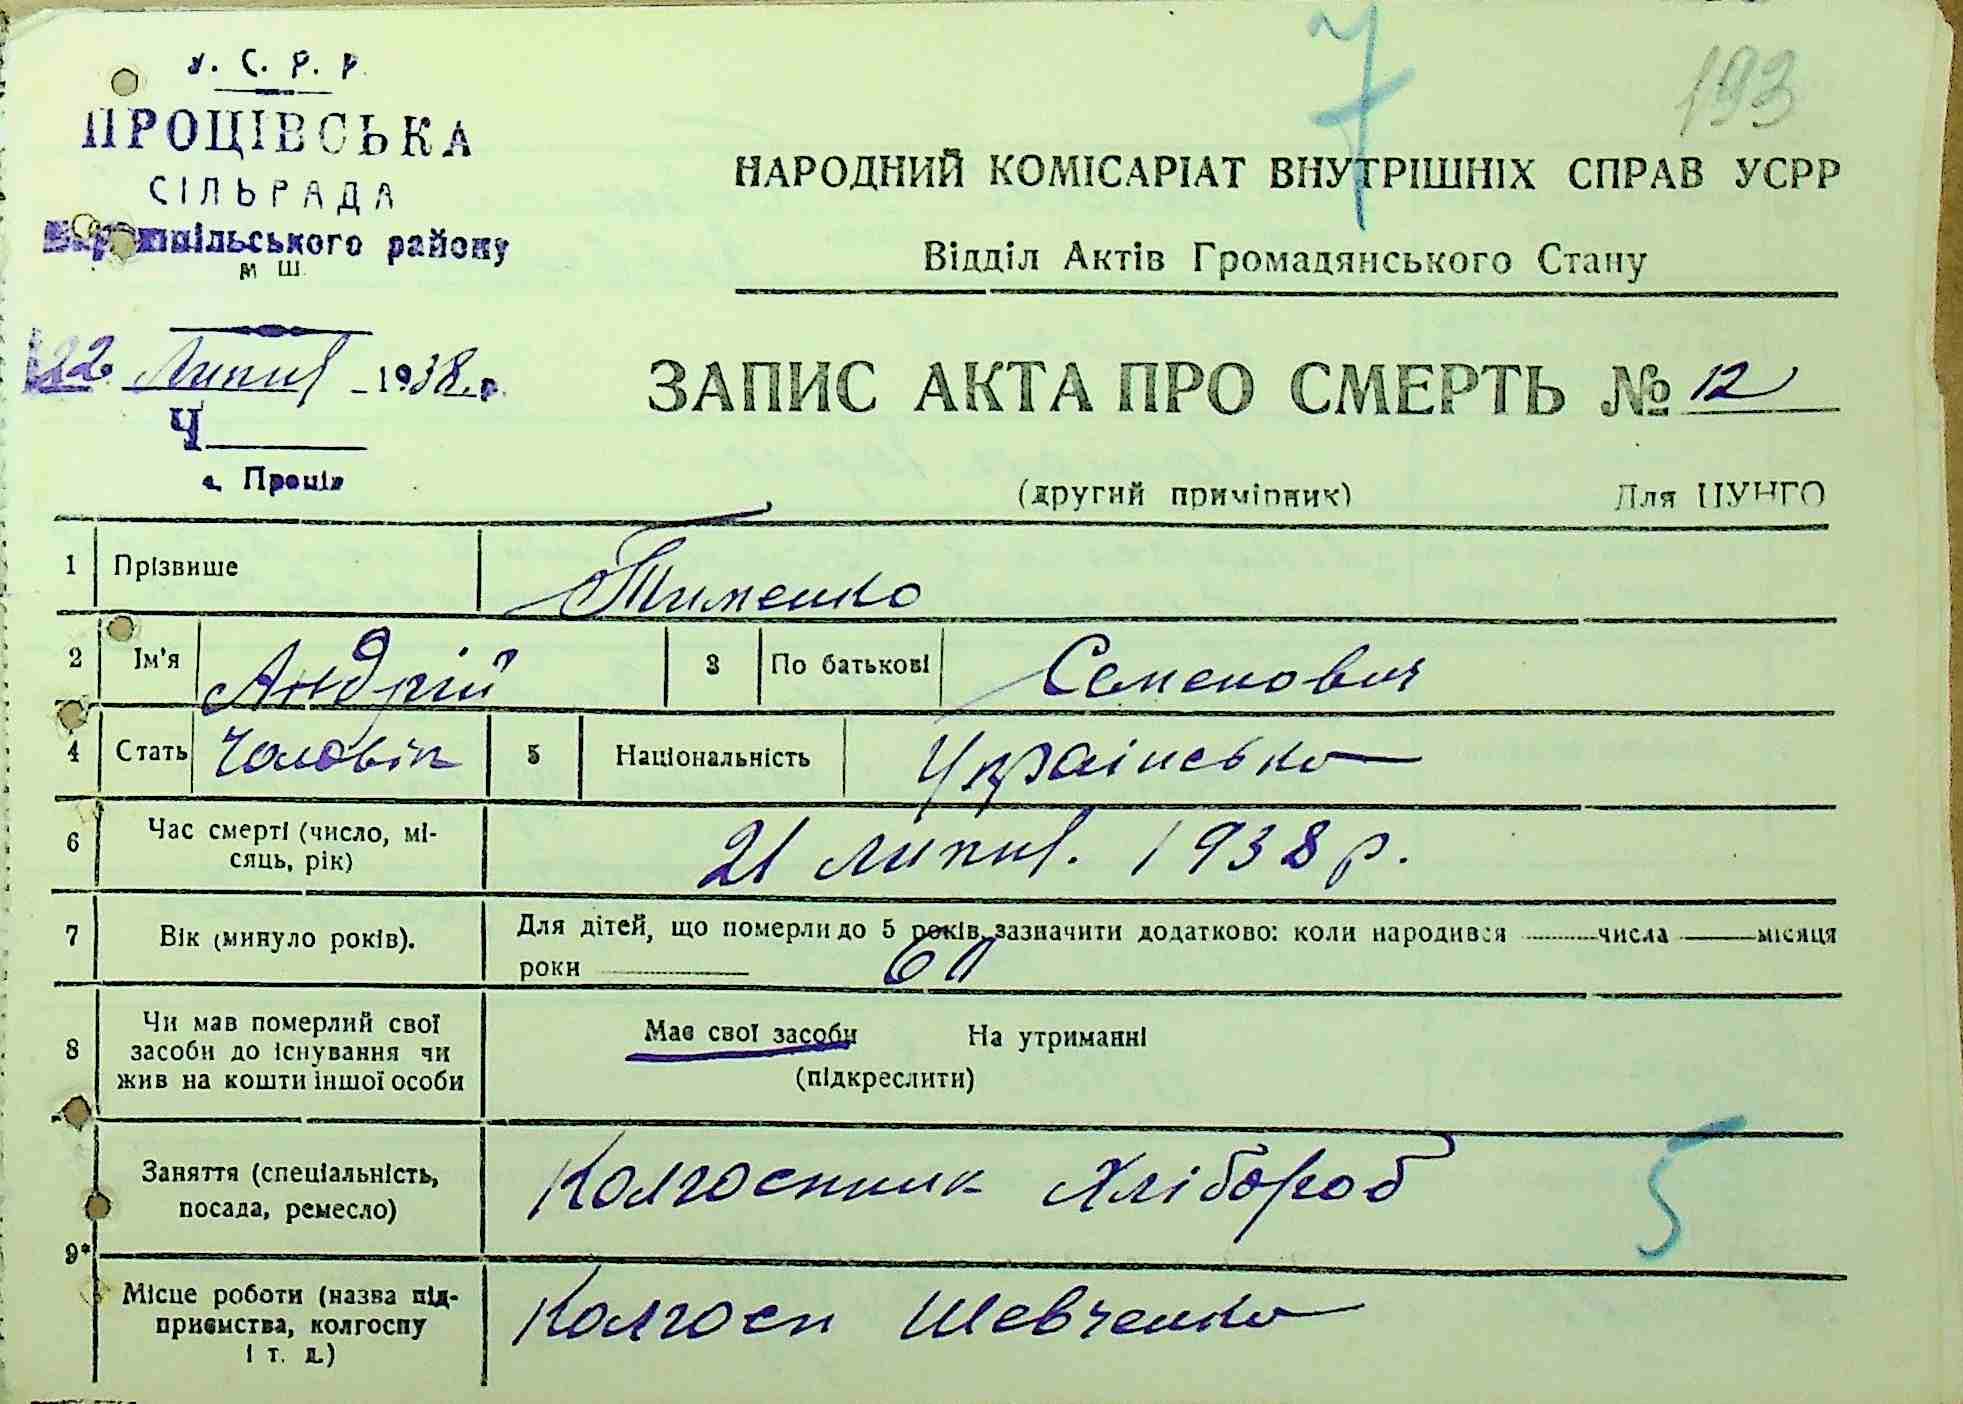 У. С. Р. Р.
ПРОЦІВСЬКА
СІЛЬРАДА
Бориспільського району
м Ш
22 Липня 1938 р.
Ч
с. Проців
7
193
НАРОДНИЙ КОМІСАРІАТ ВНУТРІШНІХ СПРАВ УСРР
Відділ Актів Громадянського Стану
ЗАПИС АКТА ПРО СМЕРТЬ № 12
(другий примірник) Для ЦУНГО
1 Прізвище Тименко
2 Ім'я Андрій 3 По батькові Семенович
4 Стать Чоловік 5 Національність Українська
6 Час смерті (число, мі-
сяць, рік) 21 липня. 1938 р.
7 Вік (минуло років). Для дітей, що померли до 5 років, зазначити додатково: коли народився числа місяця
роки 60
8 Чи мав померлий свої
засоби до існування чи
жив на кошти іншої особи
Має свої засоби На утриманні
(підкреслити)
Заняття (спеціальність,
посада, ремесло) Колгоспник Хлібороб
5
9*
Місце роботи (назва під-
приємства, колгоспу
і т. д.) Колгосп Шевченка